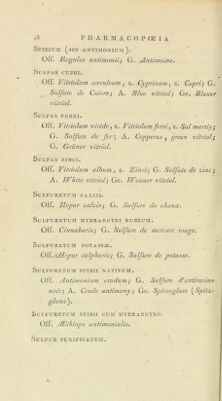 28 PHARMACOPŒIA
STIBIUM (SEU ANTIMONIUM).
Off. Regulus antimonii; G. Antimoine.
SULFAS CUPRI.
Off. Vitriolum coeruleum, s. Cyprinum, s. Cupri; G.
Sulfate de Cuivre; A. Blue vitriol; Ge. Blauer
vitriol.
SULFAS FERRI.
Off. Vitriolum viride, s. Vitriolum ferri, s. Sal martis;
G. Sulfate de fer; A. Copperas, green vitriol;
G. Grüner vitriol.
SULFAS ZINCI.
Off. Vitriolum album, s. Zinci; G. Sulfate de zinc;
A. White vitriol; Ge. Weisser vitriol.
SULFURETUM CALCIS.
Off. Hepar calcis; G. Sulfure de chaux.
SULFURETUM HYDRARGYRI RUBRUM.
Off. Cinnabaris; G. Sulfure de mercure rouge.
SULFURETUM POTASSÆ.
Off. Hepar sulphuris; G. Sulfure de potasse.
SULFURETUM STIBII NATIVUM.
Off. Antimonium crudum; G. Sulfure d'antimoine
noir; A. Crude antimony; Ge. Spiessglass (Spitz-
glanz).
SULFURETUM STIBII CUM HYDRARGYRO.
Off. Æthiops antimonialis.
SULFUR PURIFICATUM.